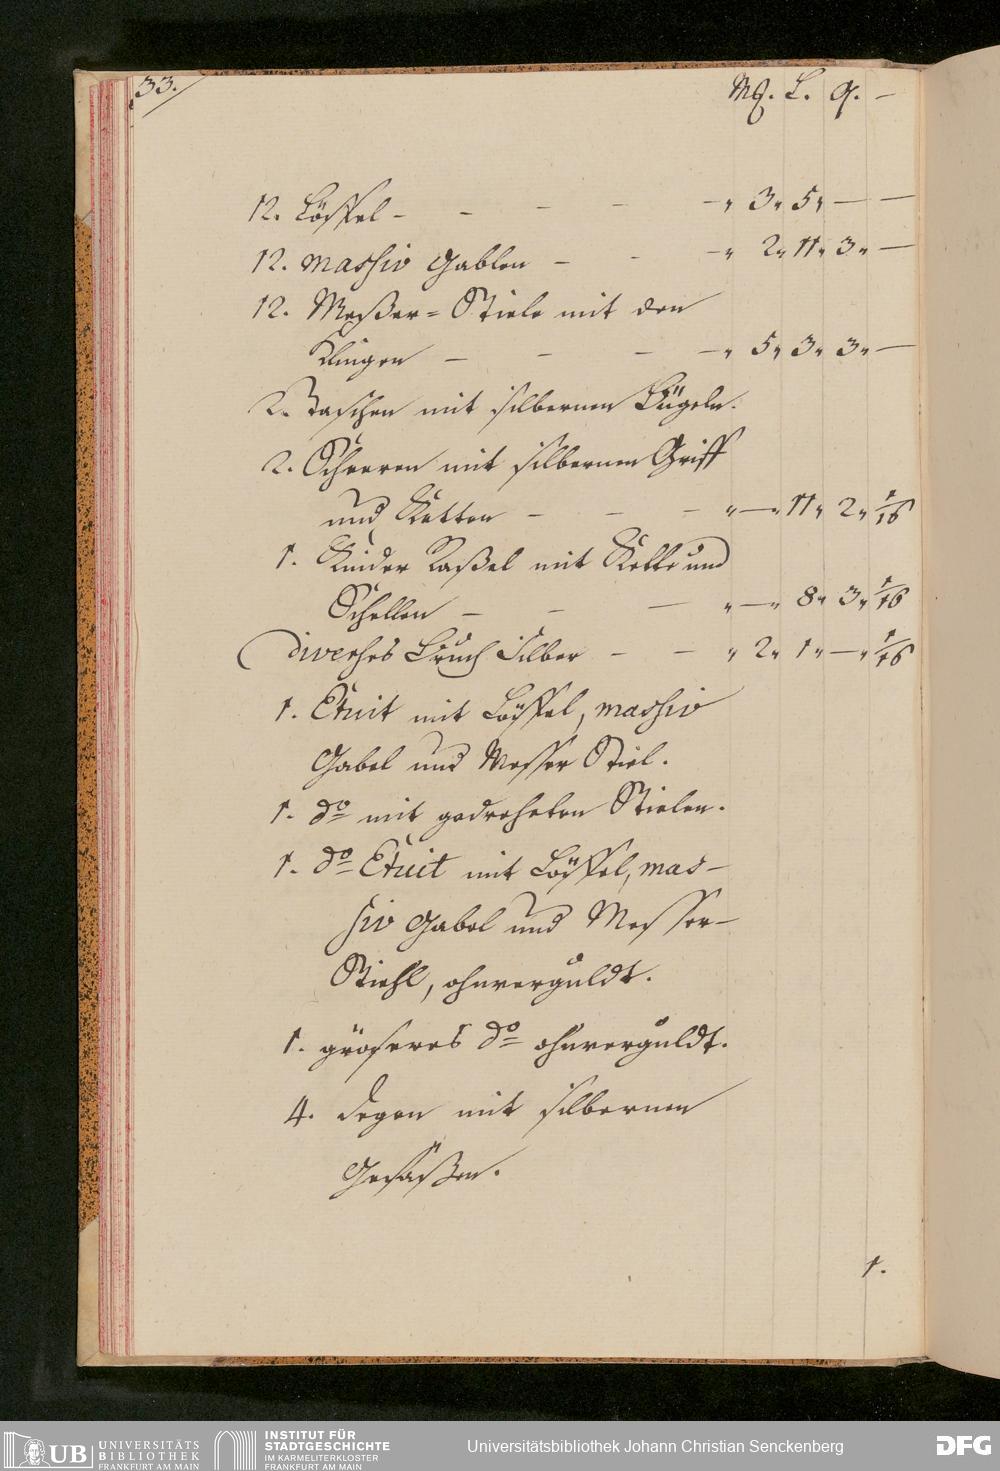 33.
M. L. q. —
12. Löffel — — — — —„ 3„ 5„ — —
12. massiv Gablen — — —„ 2„ 11„ 3„ —
12. Meßer=Stiele mit den
Klingen — — — —„ 5„ 3„ 3„ —
2. Taschen mit silbernen Bügeln.
2. Scheeren mit silbernen Griff
und Ketten — — — „—„ 11„ 2„ 1/16
1. Kinder Raßel mit Kette und
Schellen — — — „—„ 8„ 3„ 1/16
diverses Bruch Silber — — „ 2„ 1„ —„ 1/16
1. Etuit mit Löffel, massiv
Gabel und Messer Stiel.
1. do mit gedreheten Stielen.
1. do Etuit mit Löffel, mas-
siv Gabel und Messer-
Stiehl, ohnverguldt.
1. gröseres do ohnverguldt.
4. Degen mit silbernen
Gefäßen.
1.
UB UNIVERSITÄTS
BIBLIOTHEK
FRANKFURT AM MAIN
INSTITUT FÜR
STADTGESCHICHTE
IM KARMELITERKLOSTER
FRANKFURT AM MAIN
Universitätsbibliothek Johann Christian Senckenberg
DFG